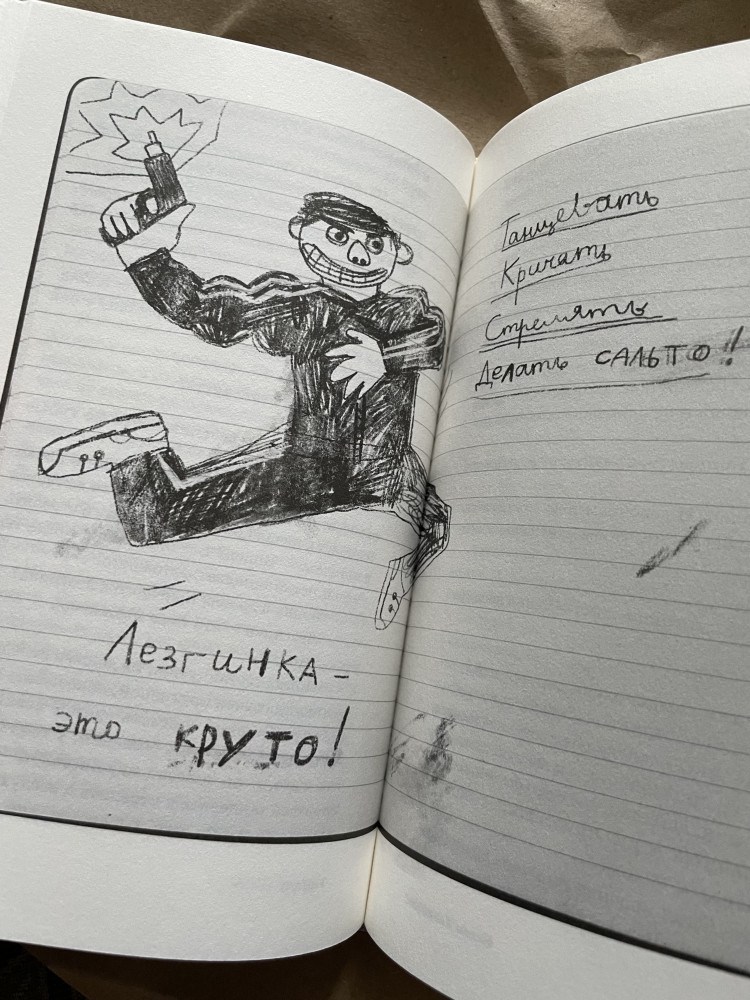 Лезгинка -
это круто!
Танцевать
Кричать
Стрелять
Делать САЛЬТО!